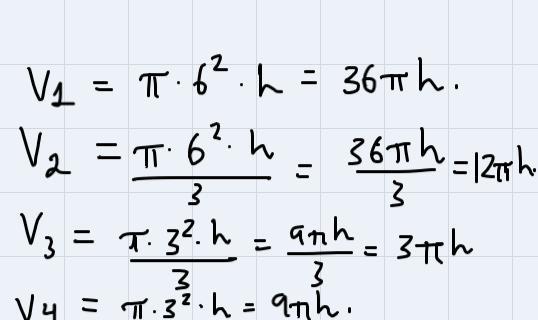 V₁ = π · 6² · h = 36πh.
V₂ = π · 6² · h / 3 = 36πh / 3 = 12πh.
V₃ = π · 3² · h / 3 = 9πh / 3 = 3πh
V₄ = π · 3² · h = 9πh.